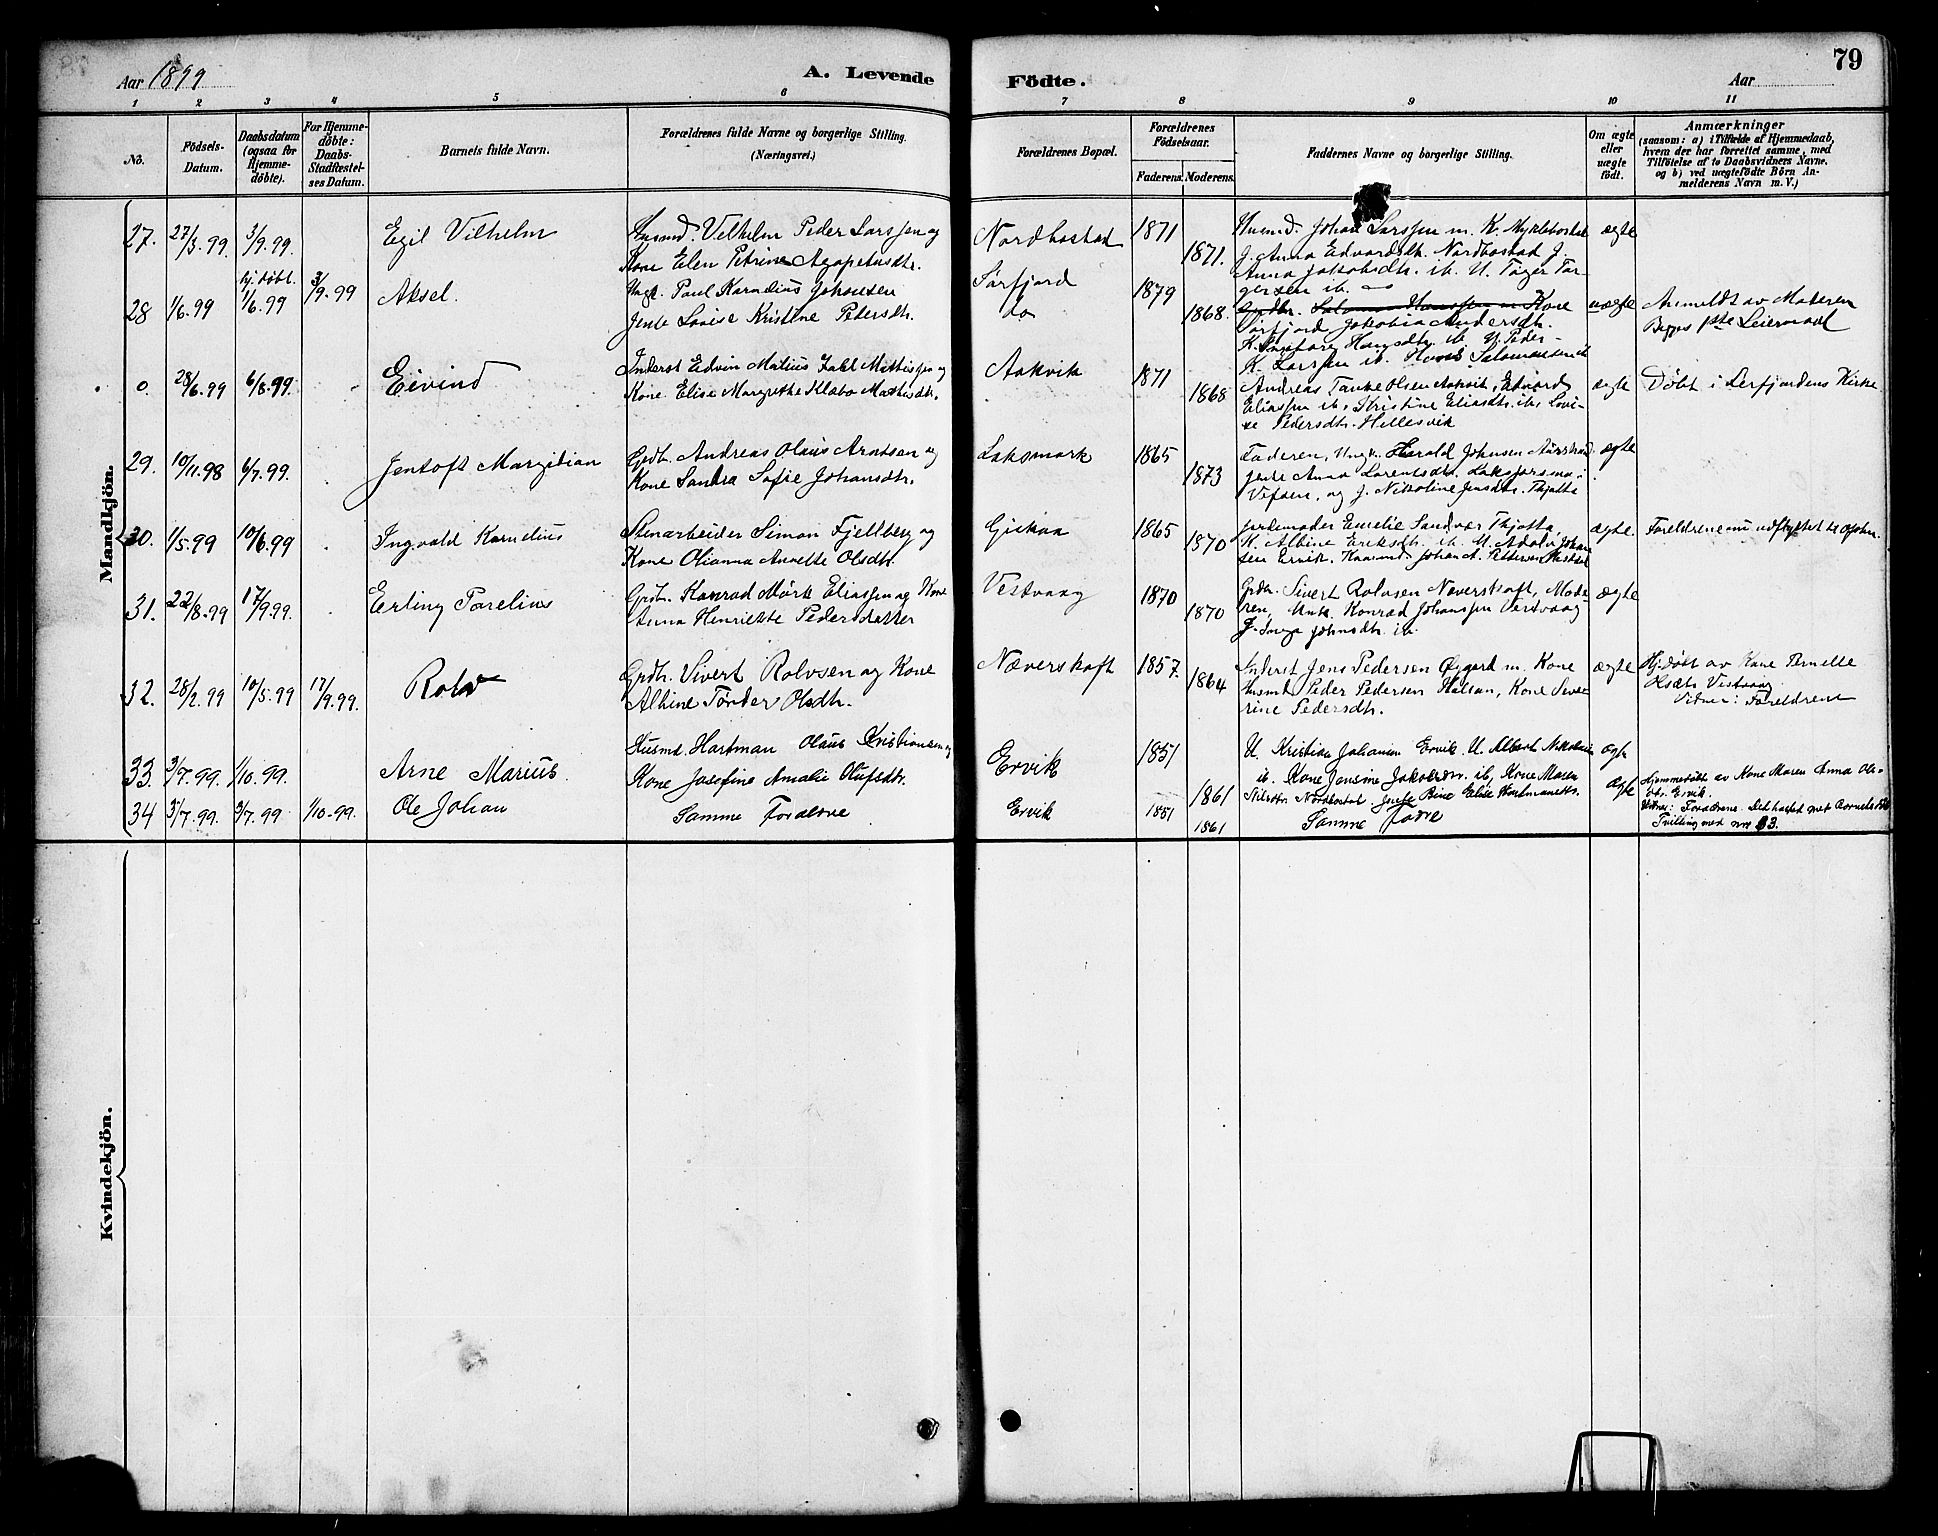 Aar 1899
A. Levende
Födte.
Aar
79
1 2 3 4 5 6 7 8 9 10 11
No.
Födsels-Datum.
Daabsdatum (ogsaa for Hjemme-döbte).
For Hjemme-döbte: Daabs-Stadfæstel-ses Datum.
Barnets fulde Navn.
Forældrenes fulde Navne og borgerlige Stilling.
(Næringsvei.)
Forældrenes Bopæl.
Forældrenes Födselsaar.
Faderens. Moderens.
Faddernes Navne og borgerlige Stilling.
Om ægte eller uægte födt.
Anmærkninger
(saasom: a) i Tilfælde af Hjemmedaab,
hvem der har forrettet samme, med
Tilföielse af to Daabsvidners Navne.
og b) ved uægtefödte Börn An-
melderens Navn m. V.)
Mandkjön.
27. 27/3.99 3/9.99. Egil Vilhelm
Husmd. Vilhelm Peder Larssen og
Kone Elen Petrine Agapetusdtr.
Nordbostad 1871 1871.
Husmd. Johan Larssen m. K. Myklebostad
J. Anna Edvardsdtr. Nordbostad J.
Anna Jakobsdtr. ib. U. Tøger Tør-
gersen ib.
ægte
28 1/6.99 hj. døbt. 1/6.99 3/9.99 Aksel.
Ungk. Paul Kornelius Johansen
Jente Lovise Kristine Pedersdtr.
Sørfjord
do
1879 1868.
Kone
Sørfjord Jakobia Andersdtr.
K. Ingeborg Hansdtr. ib. U. Peder
K. Larssen ib. Hans Salamonsen ib
uægte
Anmeldt av Moderen
Begges 1ste Leiermaal
0. 28/6.99 6/8.99. Eivind
Inderst Edvin Matius Jakl Mathissen og
Kone Elise Margrethe Klabo Mathisdtr.
Aakvik 1871 1868
Andreas Tanke Olsen Aakvik, Edvard
Eliassen ib, Kristine Eliasdtr. ib, Lovi-
se Pedersdtr. Hellesvik
ægte
Døbt i Lerfjordens Kirke
29. 10/11.98 6/7.99. Jentoft Margitian
Grdbr. Andreas Olaus Arntsen og
Kone Sandra Sofie Johansdtr.
Laksmark 1865 1873
Faderen, Ungk. Harald Johnsen
Jente Anna Lorentsdtr. Laksforsmo i
Vefsen, og J. Nikoline Jensdtr. Thjøtta
ægte
30. 1/5.99 10/6.99 Ingvald Kornelius
Stenarbeider Simon Fjellberg og
Kone Olianna Annette Olsdtr.
Giskaa 1865 1870
Jordemoder Emelie Sandvær Thjøtta,
K. Albine Eriksdtr. ib. U. Adolv Johan-
sen Ervik. Husmd. Johan A. Pettersen
ægte.
Foreldrene nu udflyttet til
31. 22/8.99 17/9.99. Erling Torelius
Grdbr. Konrad Mørk Eliassen og Kone
Anna Henriette Pedersdatter
Vestvaag 1870 1870
Grdbr. Sivert Rolvsen Næverskaft, Mode-
ren, Ungk. Konrad Johanssen Vestvaag
J. Inga Johnsdtr. ib.
ægte
32. 28/2.99 10/5.99 17/9.99. Rolv
Grdbr. Sivert Rolvsen og Kone
Albine Tønder Olsdtr.
Næverskaft 1857. 1864
Inderst Jens Pedersen Øygard m. Kone
Husmd Peder Pedersen Halsan, Kone Seve-
rine Pedersdtr.
ægte
Hj.døbt av Kone Pernelle
Olsdtr Vestvaag
Vidner: Foreldrene
33. 3/7.99. 1/10.99. Arne Marius.
Husmd. Hartman Olaus Kristiansen og
Kone Josefine Amalie Olufsdtr.
Ervik 1851 1861
U. Kristian Johansen Ervik. U. Albert Nikolaisen
ib. Kone Jensine Jakobsen. ib, Kone Maren
Nilsdtr. Nordbostad Jente Bine Elise Hartmansdtr.
ægte
34 3/7.99. 3/7.99 1/10-99. Ole Johan
Samme Foreldre
Ervik 1851 1861
Samme Fadre
Ægte
Hjemmedøbt av Kone Maren Anna Ols-
dtr. Ervik.
Vidner: Foreldrene. Det hastet met Barnets
Tvilling med no 33.
Kvindekjön.